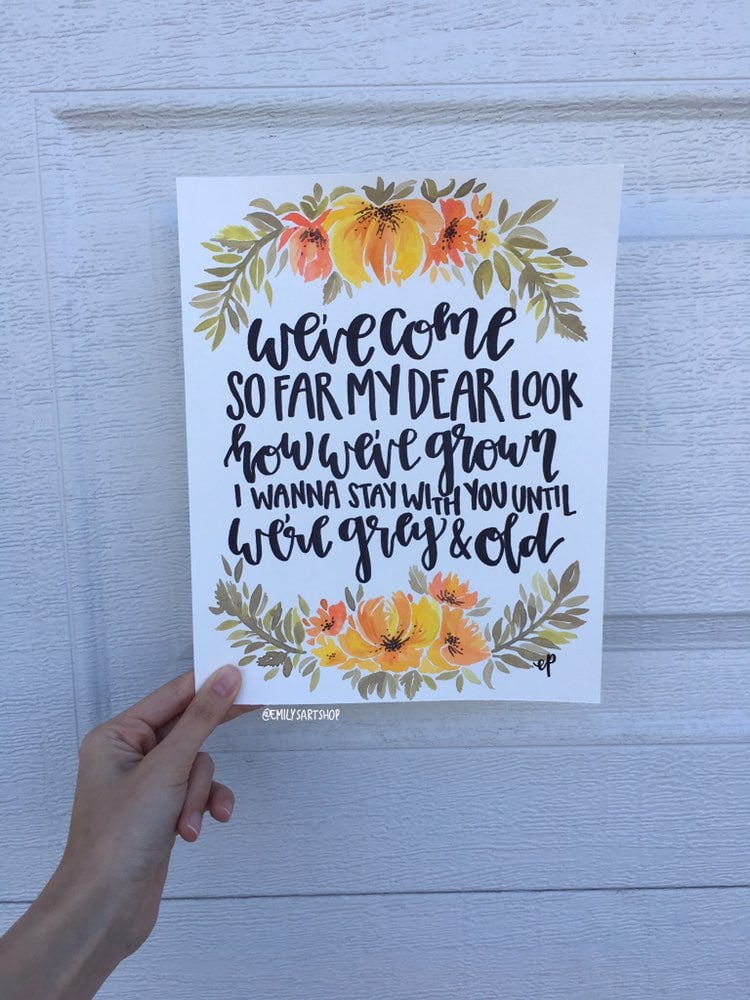 we've come
SO FAR MY DEAR LOOK
how we've grown
I WANNA STAY WITH YOU UNTIL
we're grey & old
ep
@EMILYSARTSHOP